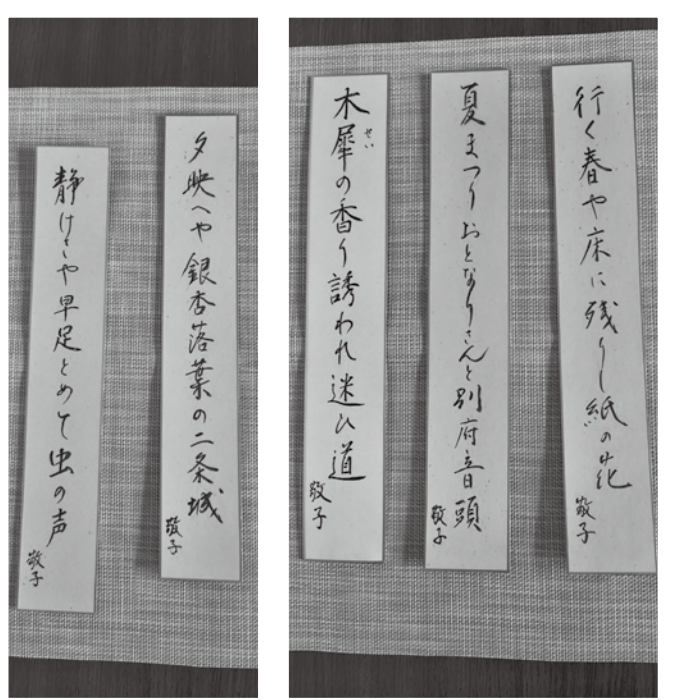 行く春や床に残りし紙の花
敬子
夏まつりおとなりさんと別府音頭
敬子
木犀の香り誘われ迷ひ道
せい
敬子
夕映へや銀杏落葉の二条城
敬子
静けさや早足とめて虫の声
敬子